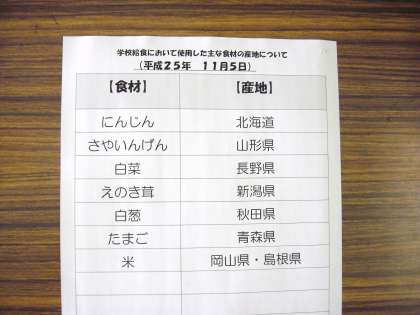 学校給食において使用した主な食材の産地について
(平成25年 11月5日)
【食材】 【産地】
にんじん 北海道
さやいんげん 山形県
白菜 長野県
えのき茸 新潟県
白葱 秋田県
たまご 青森県
米 岡山県・島根県